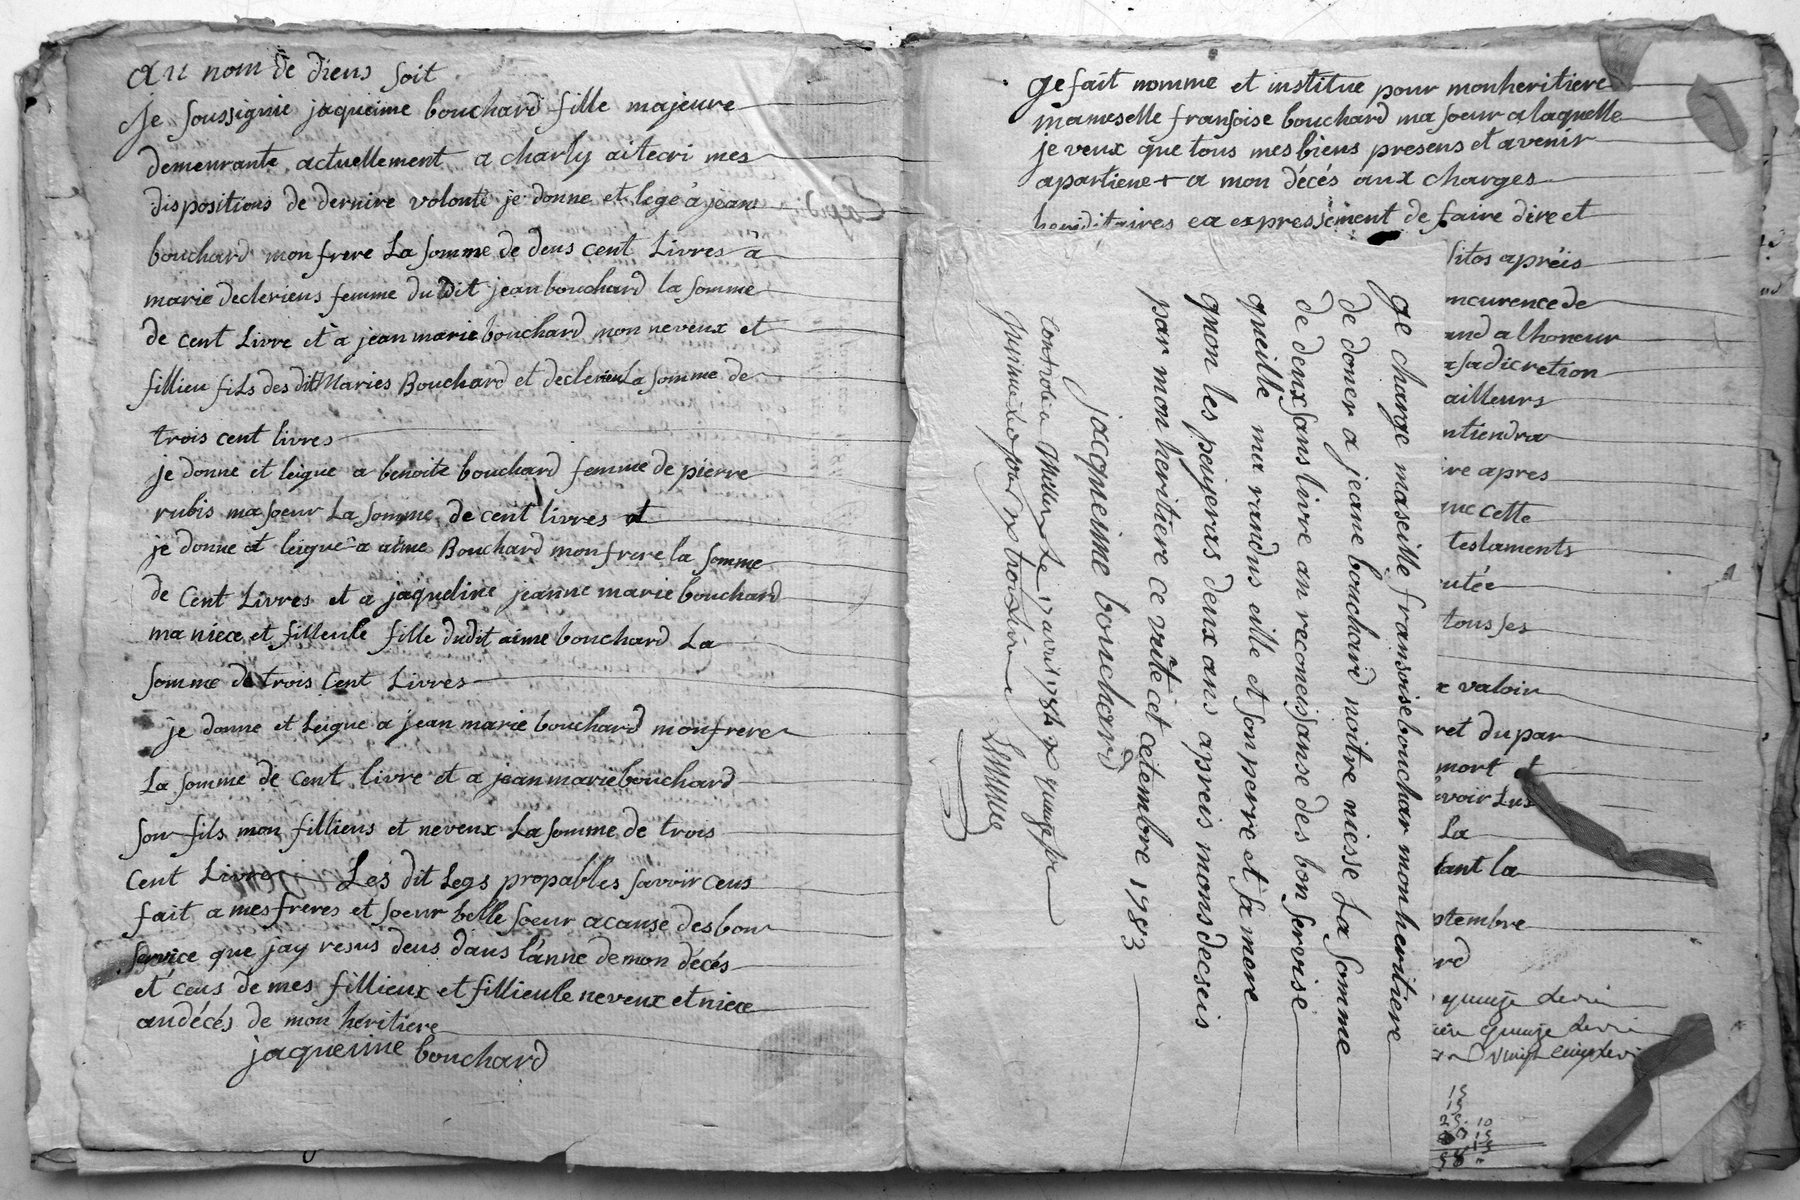 au nom de dieus soit
Je soussignie jaqueime bouchard fille majeure
demeurante actuellement a charly ai tecri mes
dispositions de dernire volonté je donne et lege à jean
bouchard mon frere La somme de deus cent Livres à
marie decleriens femme du dit jean bouchard la somme
de cent Livre et à jean marie bouchard mon neveux et
fillieu fils des dit Maries Bouchard et declerien La somme de
trois cent livres
je donne et leigue a benoite bouchard femme de pierre
rubis ma soeur La somme de cent livres et
je donne et leigue a aime Bouchard mon frere la somme
de Cent Livres et a jaqueline jeanne marie bouchard
ma niece et filleule fille dudit aime bouchard La
somme de trois Cent Livres
je donne et Leigue a jean marie bouchard mon frere
La somme de cent livre et a jean marie bouchard
son fils mon filliens et neveux La somme de trois
Cent Livres Les dit Legs propables savoir ceus
fait a mes freres et soeur belle soeur a cause des bon
service que jay resus deus dans l'anne de mon décés
et ceus de mes fillieux et fillieule neveux et niece
au décés de mon héritiere
jaqueime bouchard
ge fait nomme et institue pour mon heritiere
mameselle fransoise bouchard ma soeur a laquelle
je veux que tous mes biens presens et avenir
apartiene + a mon décés aux charges
heriditaires ea expressément de faire dire et
sitos apréis
ncurence de
and a lhoneur
a sa dicretion
ailleurs
ntiendra
ire apres
que cette
testaments
utée
tous ses
valoir
ret du par
mort et
voir Lus
La
tant la
ptembre
rd
quinze
quinze
vingt cinq
15
15
25 10
15
58
ge charge maseille fransoise bouchar mon heritiere
de doner a jeane bouchard noitre niesse La somme
de deux sans livre an reconeissanse des bon servise
queille ma randus eille et son perre et sa mere
quon les peujeras deux ans apreis mons decseis
par mon heritiere ce vûte cet cetembre 1783
jacqueime bouchard
le 17 avril 1784